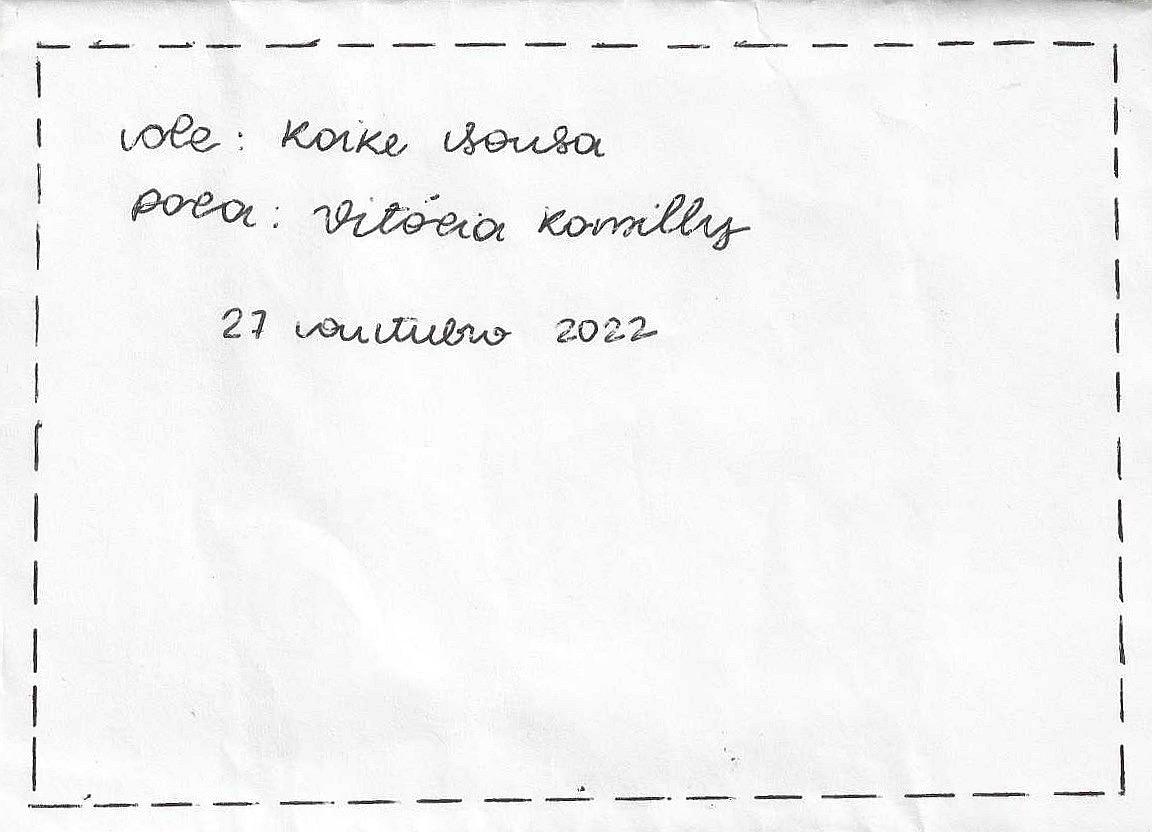 de: Kaike Sousa
para: Vitória Kamilly
27 outubro 2022